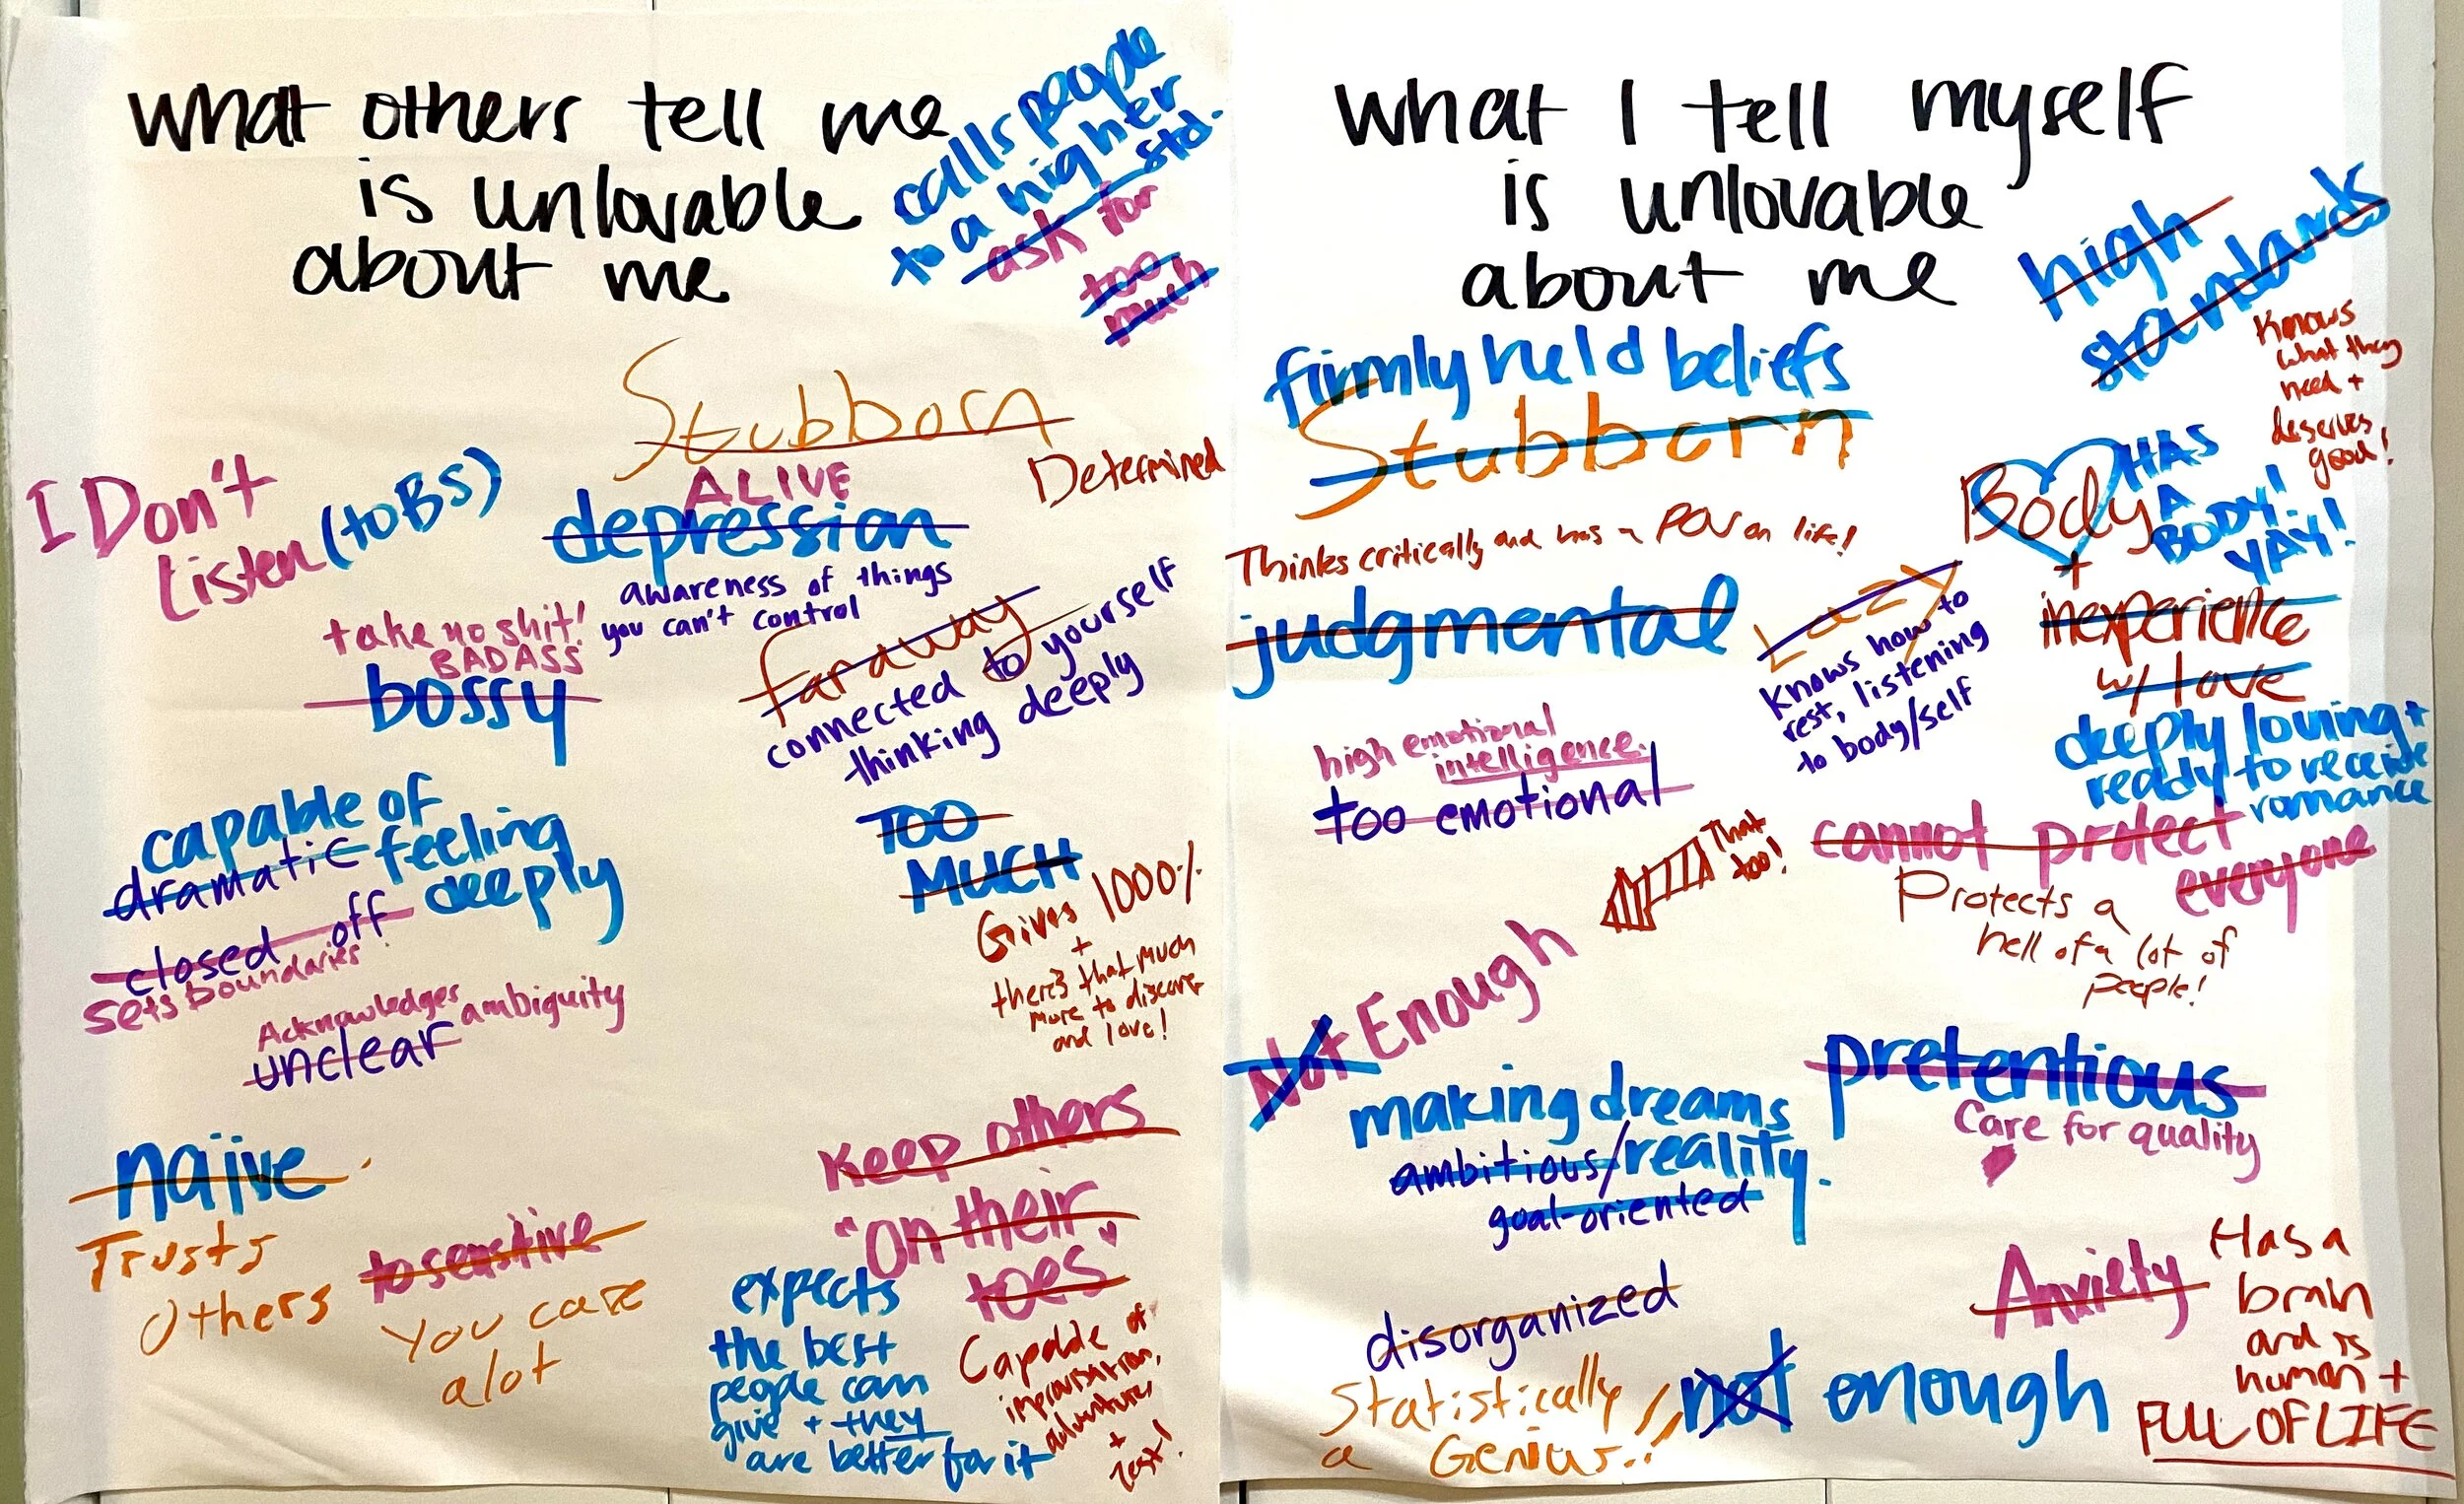 what others tell me
is unlovable
about me
calls people
to a higher
std.
ask for
too
much
Stubborn
Determined
I Don't
Listen (to BS)
ALIVE
depression
awareness of things
you can't control
take no shit!
BADASS
bossy
faraway
connected to yourself
thinking deeply
capable of
dramatic feeling
deeply
closed off
sets boundaries
Acknowledges ambiguity
unclear
TOO
MUCH
Gives 1000%
+
there's that much
more to discover
and love!
naïve
Trusts
Others
to sensitive
You care
alot
Keep others
"On their
toes"
expects
the best
people can
give + they
are better for it
Capable of
improvisation,
adventure,
+
zest!
what I tell myself
is unlovable
about me
high
standards
Knows
what they
need +
deserves
good!
firmly held beliefs
Stubborn
Thinks critically and has a POV on life!
judgmental
Body
HAS
A
BODY!
YAY!
+
inexperience
w/ love
deeply loving +
ready to receive
romance
Lazy
knows how to
rest, listening
to body/self
high emotional
intelligence.
too emotional
That
too!
cannot protect
everyone
Protects a
hell of a lot of
people!
Not Enough
making dreams
ambitious/reality.
goal-oriented
pretentious
Care for quality
disorganized
Statistically
a Genius!!
not enough
Anxiety
Has a
brain
and is
human +
FULL OF LIFE